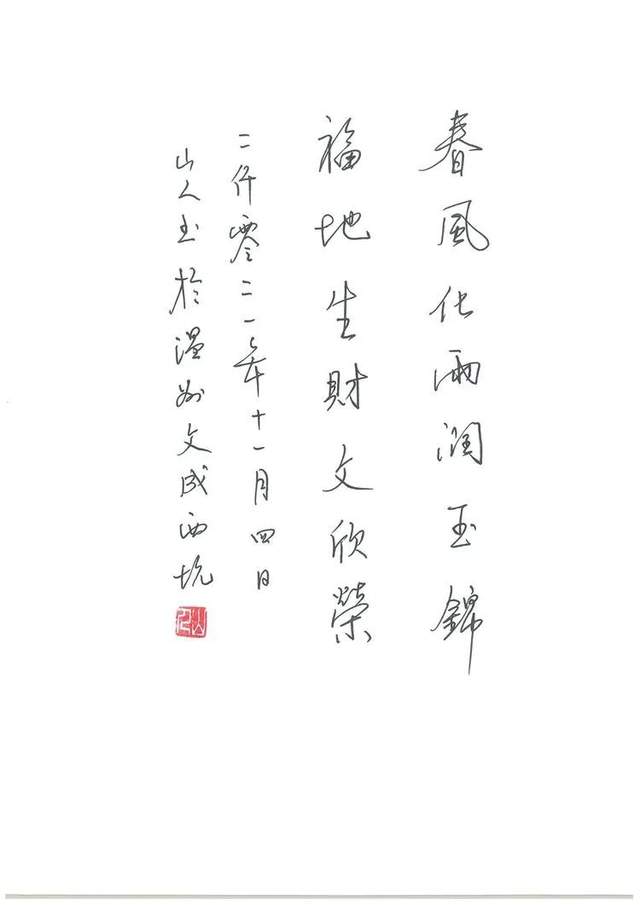 春風化雨潤玉錦
福地生財文欣榮
二仟零二一年十一月四日
山人書於溫州文成西坑
山人